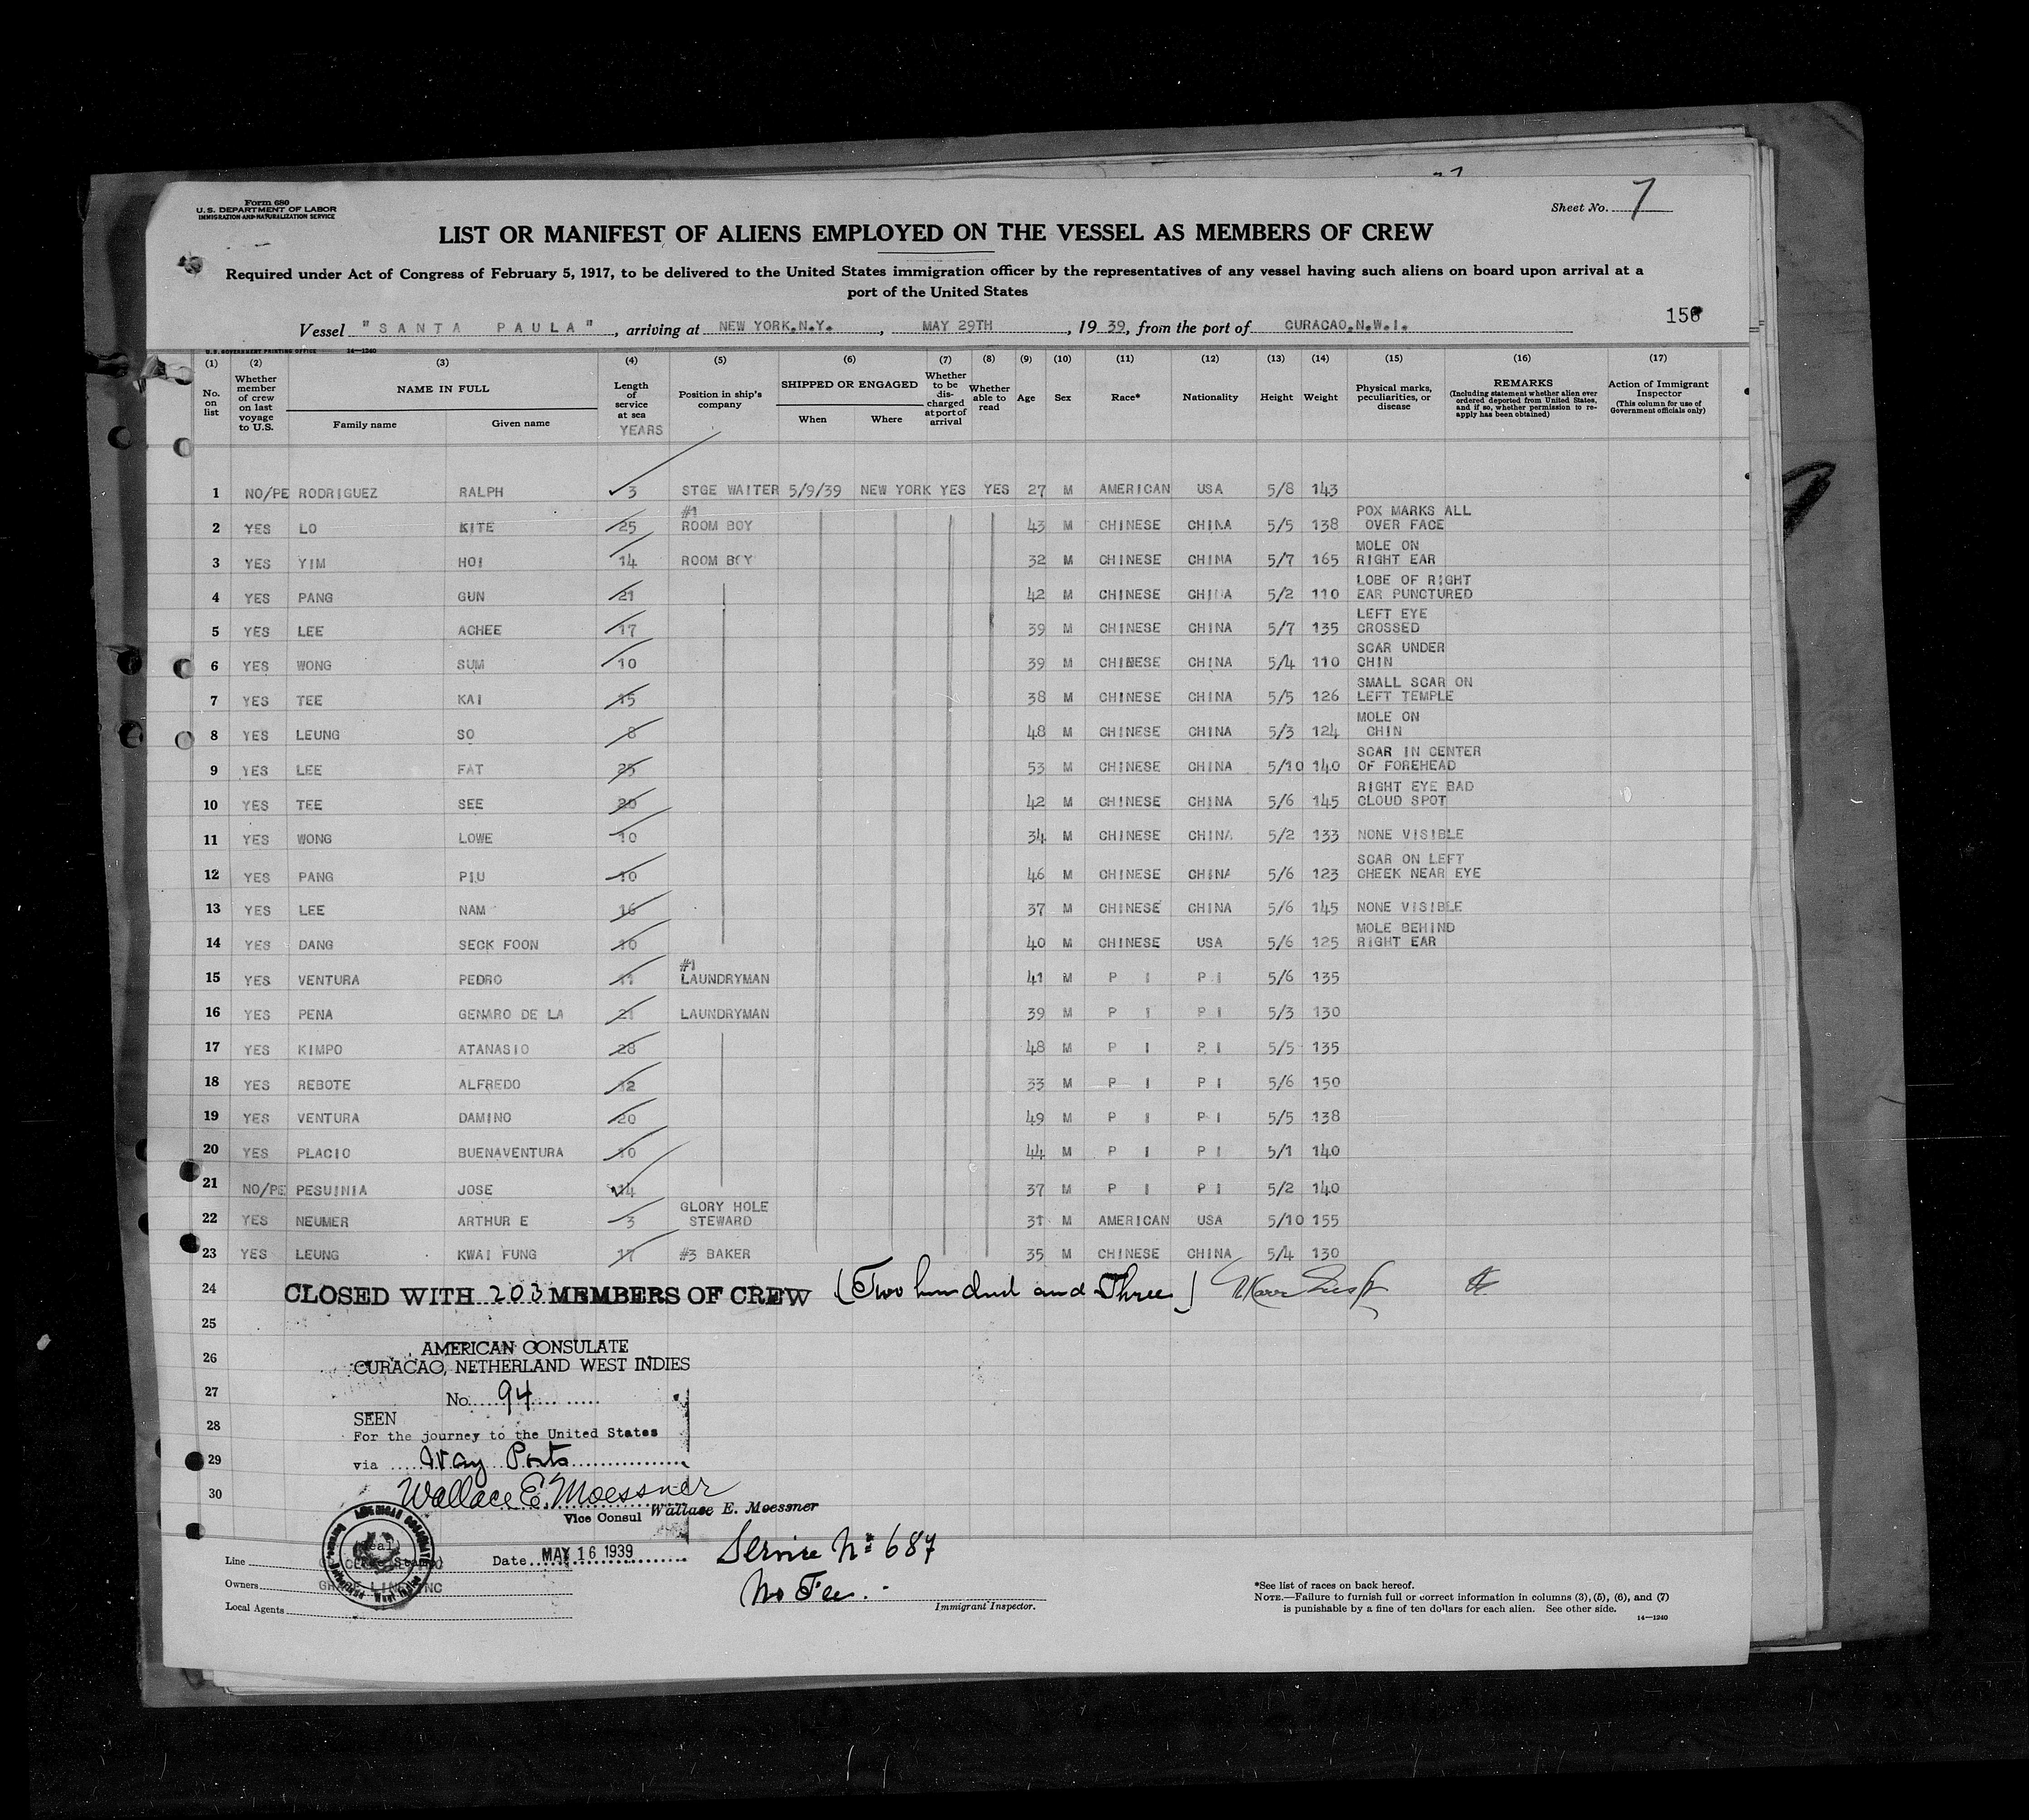 Form 680
U. S. DEPARTMENT OF LABOR
IMMIGRATION AND NATURALIZATION SERVICE
Sheet No. 7
LIST OR MANIFEST OF ALIENS EMPLOYED ON THE VESSEL AS MEMBERS OF CREW
Required under Act of Congress of February 5, 1917, to be delivered to the United States immigration officer by the representatives of any vessel having such aliens on board upon arrival at a
port of the United States
Vessel "SANTA PAULA", arriving at NEW YORK.N.Y., MAY 29TH, 1939, from the port of CURACAO.N.W.I.
156
U. S. GOVERNMENT PRINTING OFFICE 14—1240
(1) No. on list
(2) Whether member of crew on last voyage to U.S.
(3) NAME IN FULL
Family name
Given name
(4) Length of service at sea
YEARS
(5) Position in ship's company
(6) SHIPPED OR ENGAGED
When
Where
(7) Whether to be discharged at port of arrival
(8) Whether able to read
(9) Age
(10) Sex
(11) Race*
(12) Nationality
(13) Height
(14) Weight
(15) Physical marks, peculiarities, or disease
(16) REMARKS
(Including statement whether alien ever ordered deported from United States, and if so, whether permission to reapply has been obtained)
(17) Action of Immigrant Inspector
(This column for use of Government officials only)
1 NO/PE RODRIGUEZ RALPH 3 STGE WAITER 5/9/39 NEW YORK YES YES 27 M AMERICAN USA 5/8 143
2 YES LO KITE 25 #1 ROOM BOY 43 M CHINESE CHINA 5/5 138 POX MARKS ALL OVER FACE
3 YES YIM HOI 14 ROOM BOY 32 M CHINESE CHINA 5/7 165 MOLE ON RIGHT EAR
4 YES PANG GUN 21 42 M CHINESE CHINA 5/2 110 LOBE OF RIGHT EAR PUNCTURED
5 YES LEE ACHEE 17 39 M CHINESE CHINA 5/7 135 LEFT EYE CROSSED
6 YES WONG SUM 10 39 M CHINESE CHINA 5/4 110 SCAR UNDER CHIN
7 YES TEE KAI 15 38 M CHINESE CHINA 5/5 126 SMALL SCAR ON LEFT TEMPLE
8 YES LEUNG SO 8 48 M CHINESE CHINA 5/3 124 MOLE ON CHIN
9 YES LEE FAT 25 53 M CHINESE CHINA 5/10 140 SCAR IN CENTER OF FOREHEAD
10 YES TEE SEE 20 42 M CHINESE CHINA 5/6 145 RIGHT EYE BAD CLOUD SPOT
11 YES WONG LOWE 10 34 M CHINESE CHINA 5/2 133 NONE VISIBLE
12 YES PANG PIU 10 46 M CHINESE CHINA 5/6 123 SCAR ON LEFT CHEEK NEAR EYE
13 YES LEE NAM 16 37 M CHINESE CHINA 5/6 145 NONE VISIBLE
14 YES DANG SECK FOON 10 40 M CHINESE USA 5/6 125 MOLE BEHIND RIGHT EAR
15 YES VENTURA PEDRO 11 #1 LAUNDRYMAN 41 M P I P I 5/6 135
16 YES PENA GENARO DE LA 21 LAUNDRYMAN 39 M P I P I 5/3 130
17 YES KIMPO ATANASIO 28 48 M P I P I 5/5 135
18 YES REBOTE ALFREDO 12 33 M P I P I 5/6 150
19 YES VENTURA DAMINO 20 49 M P I P I 5/5 138
20 YES PLACIO BUENAVENTURA 10 44 M P I P I 5/1 140
21 NO/PE PESUINIA JOSE 14 37 M P I P I 5/2 140
22 YES NEUMER ARTHUR E 3 GLORY HOLE STEWARD 31 M AMERICAN USA 5/10 155
23 YES LEUNG KWAI FUNG 17 #3 BAKER 35 M CHINESE CHINA 5/4 130
24 CLOSED WITH 203 MEMBERS OF CREW (Two hundred and Three)
25
26
AMERICAN CONSULATE
CURACAO, NETHERLAND WEST INDIES
27
No. 94
28
SEEN
For the journey to the United States
29
via Way Ports
30
Wallace E. Moessner
Wallace E. Moessner
Vice Consul
Line
Date MAY 16 1939
Service No 687
Owners GRACE LINE INC
No Fee.
Local Agents
Immigrant Inspector.
*See list of races on back hereof.
NOTE.—Failure to furnish full or correct information in columns (3), (5), (6), and (7)
is punishable by a fine of ten dollars for each alien. See other side.
14—1240